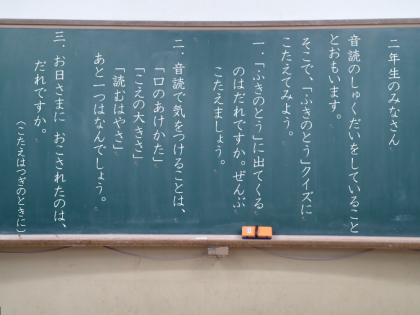 二年生のみなさん
音読のしゅくだいをしていること
とおもいます。
そこで、「ふきのとう」クイズに
こたえてみよう。
一．「ふきのとう」に出てくる
のはだれですか。ぜんぶ
こたえましょう。
二．音読で気をつけることは、
「口のあけかた」
「こえの大きさ」
「読むはやさ」
あと一つはなんでしょう。
三．お日さまに おこされたのは、
だれですか。
（こたえはつぎのときに）